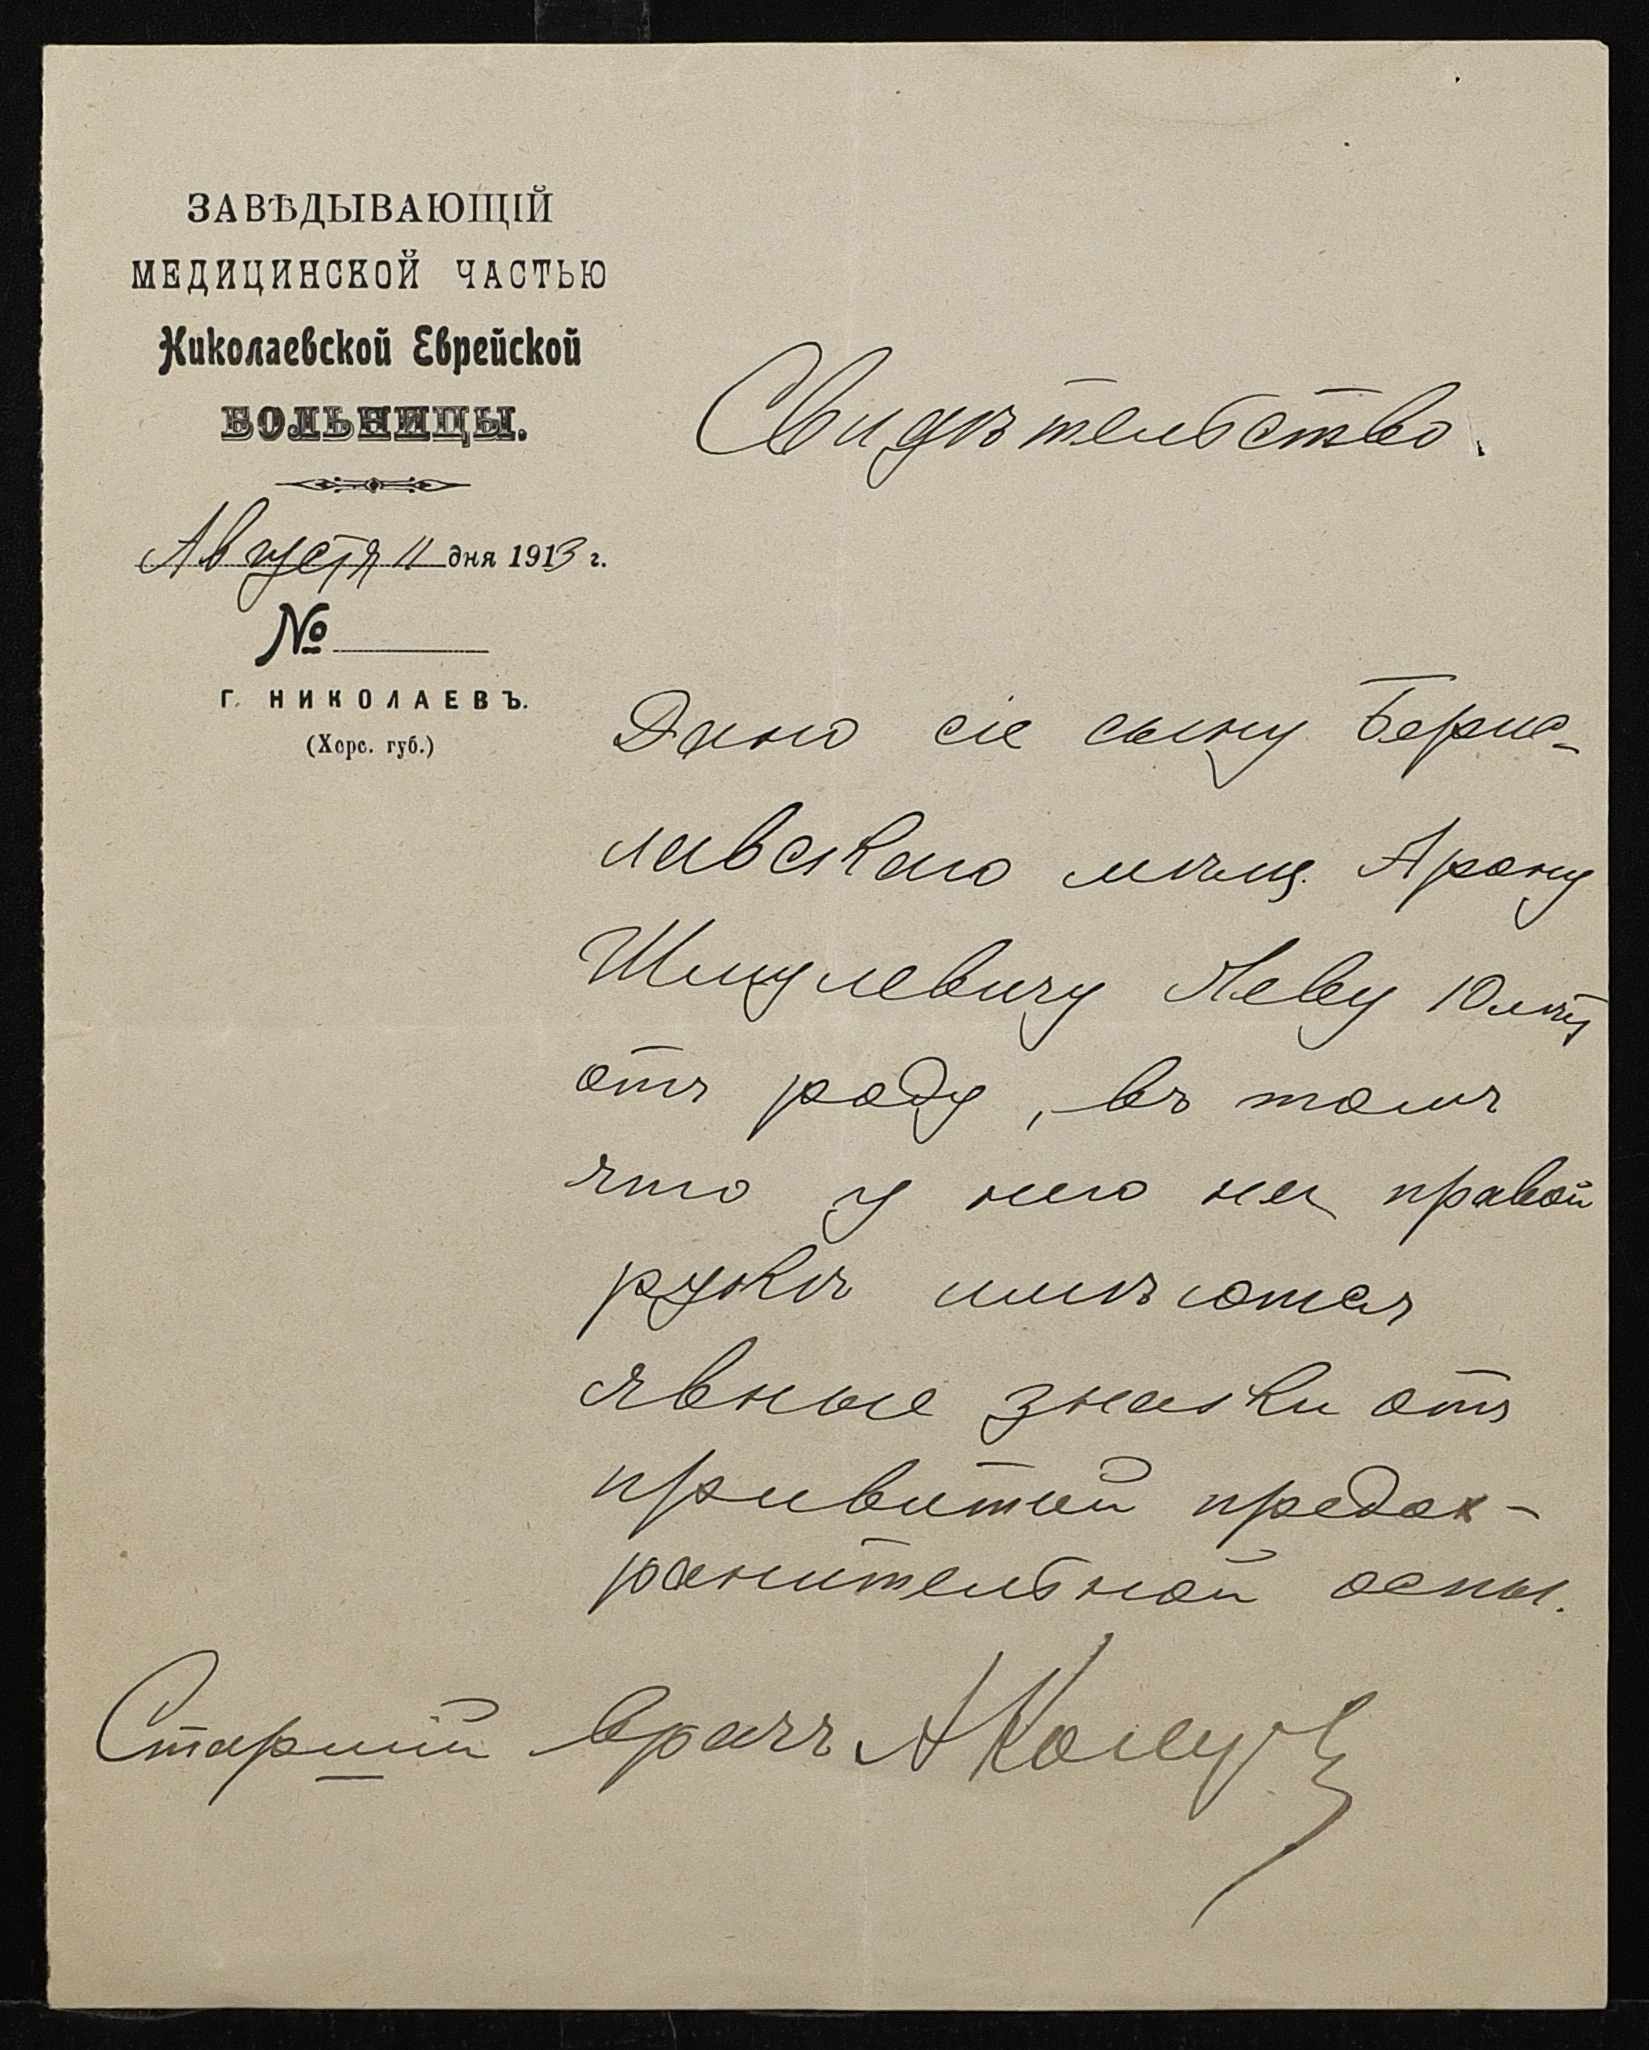 ЗАВѢДЫВАЮЩІЙ
МЕДИЦИНСКОЙ ЧАСТЬЮ
Николаевской Еврейской
БОЛЬНИЦЫ.
Августа 11 дня 1913 г.
№
Г. НИКОЛАЕВЪ.
(Херс. губ.)
Свидѣтельство.
Дано сіе сыну Берис-
лавскаго мѣщ. Арону
Шмулевичу Леву 10 лѣтъ
отъ роду, въ томъ
что у него на правой
рукѣ имѣются
явные знаки отъ
привитой предох-
ранительной оспы.
Старшій врачъ А